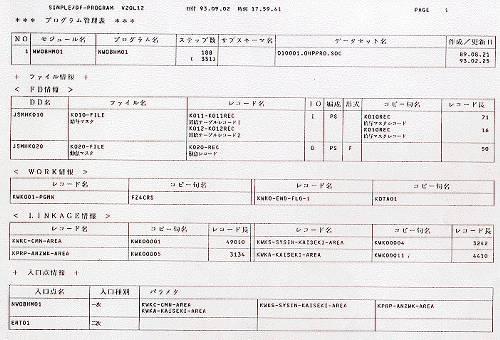 SIMPLE/DF-PROGRAM V20L12 日付 93.09.02 時刻 17.59.41 PAGE 1
*** プログラム管理表 ***
NO モジュール名 プログラム名 ステップ数 サブスキーマ名 データセット名 作成/更新日
1 NWOBHM01 NWOBHM01 188 010001.OHPPRO.SOC 89.08.21
( 351) 93.02.25
+ ファイル情報 +
< FD情報 >
DD名 ファイル名 レコード名 IO 編成 形式 コピー句名 レコード長
JSMHK010 K010-FILE K011-K011REC I PS K010REC 71
給与マスタ
K012-K012REC K010REC 16
給与マスタレコード
JSMHK020 K020-FILE K020-REC O PS F 50
< WORK情報 >
レコード名 コピー句名 レコード名 コピー句名
KWK001-PGMN F24CRS KWKO-END-FLG-1 KDTA01
< LINKAGE情報 >
レコード名 コピー句名 レコード長 レコード名 コピー句名 レコード長
KWKC-CMN-AREA KWK00001 49010 KWKS-SYSIN-KAISEKI-AREA KWK00004 3242
KPRP-ANZWK-AREA KWK00005 3134 KWKA-KAISEKI-AREA KWK00011 4410
+ 入口点情報 +
入口点名 入口種別 パラメタ
NWOBHM01 一次 KWKC-CMN-AREA KWKS-SYSIN-KAISEKI-AREA KPRP-ANZWK-AREA
KWKA-KAISEKI-AREA
ENT01 二次